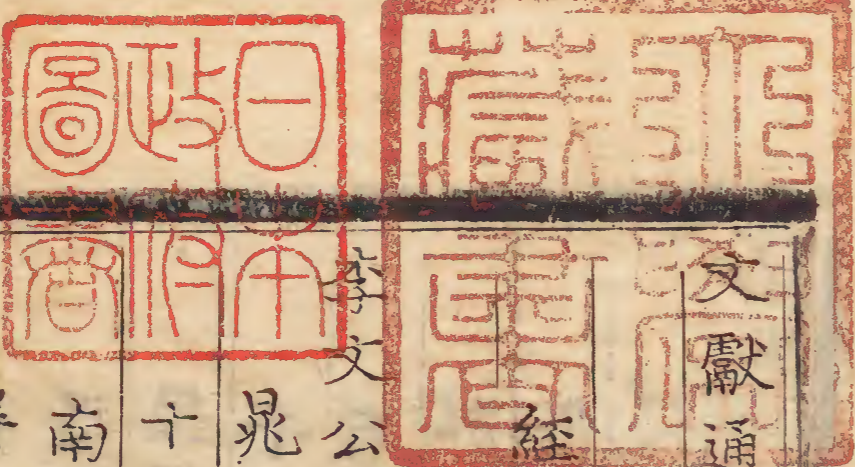 文獻通
經
李文公
晁
十
南
日本
政府
圖書